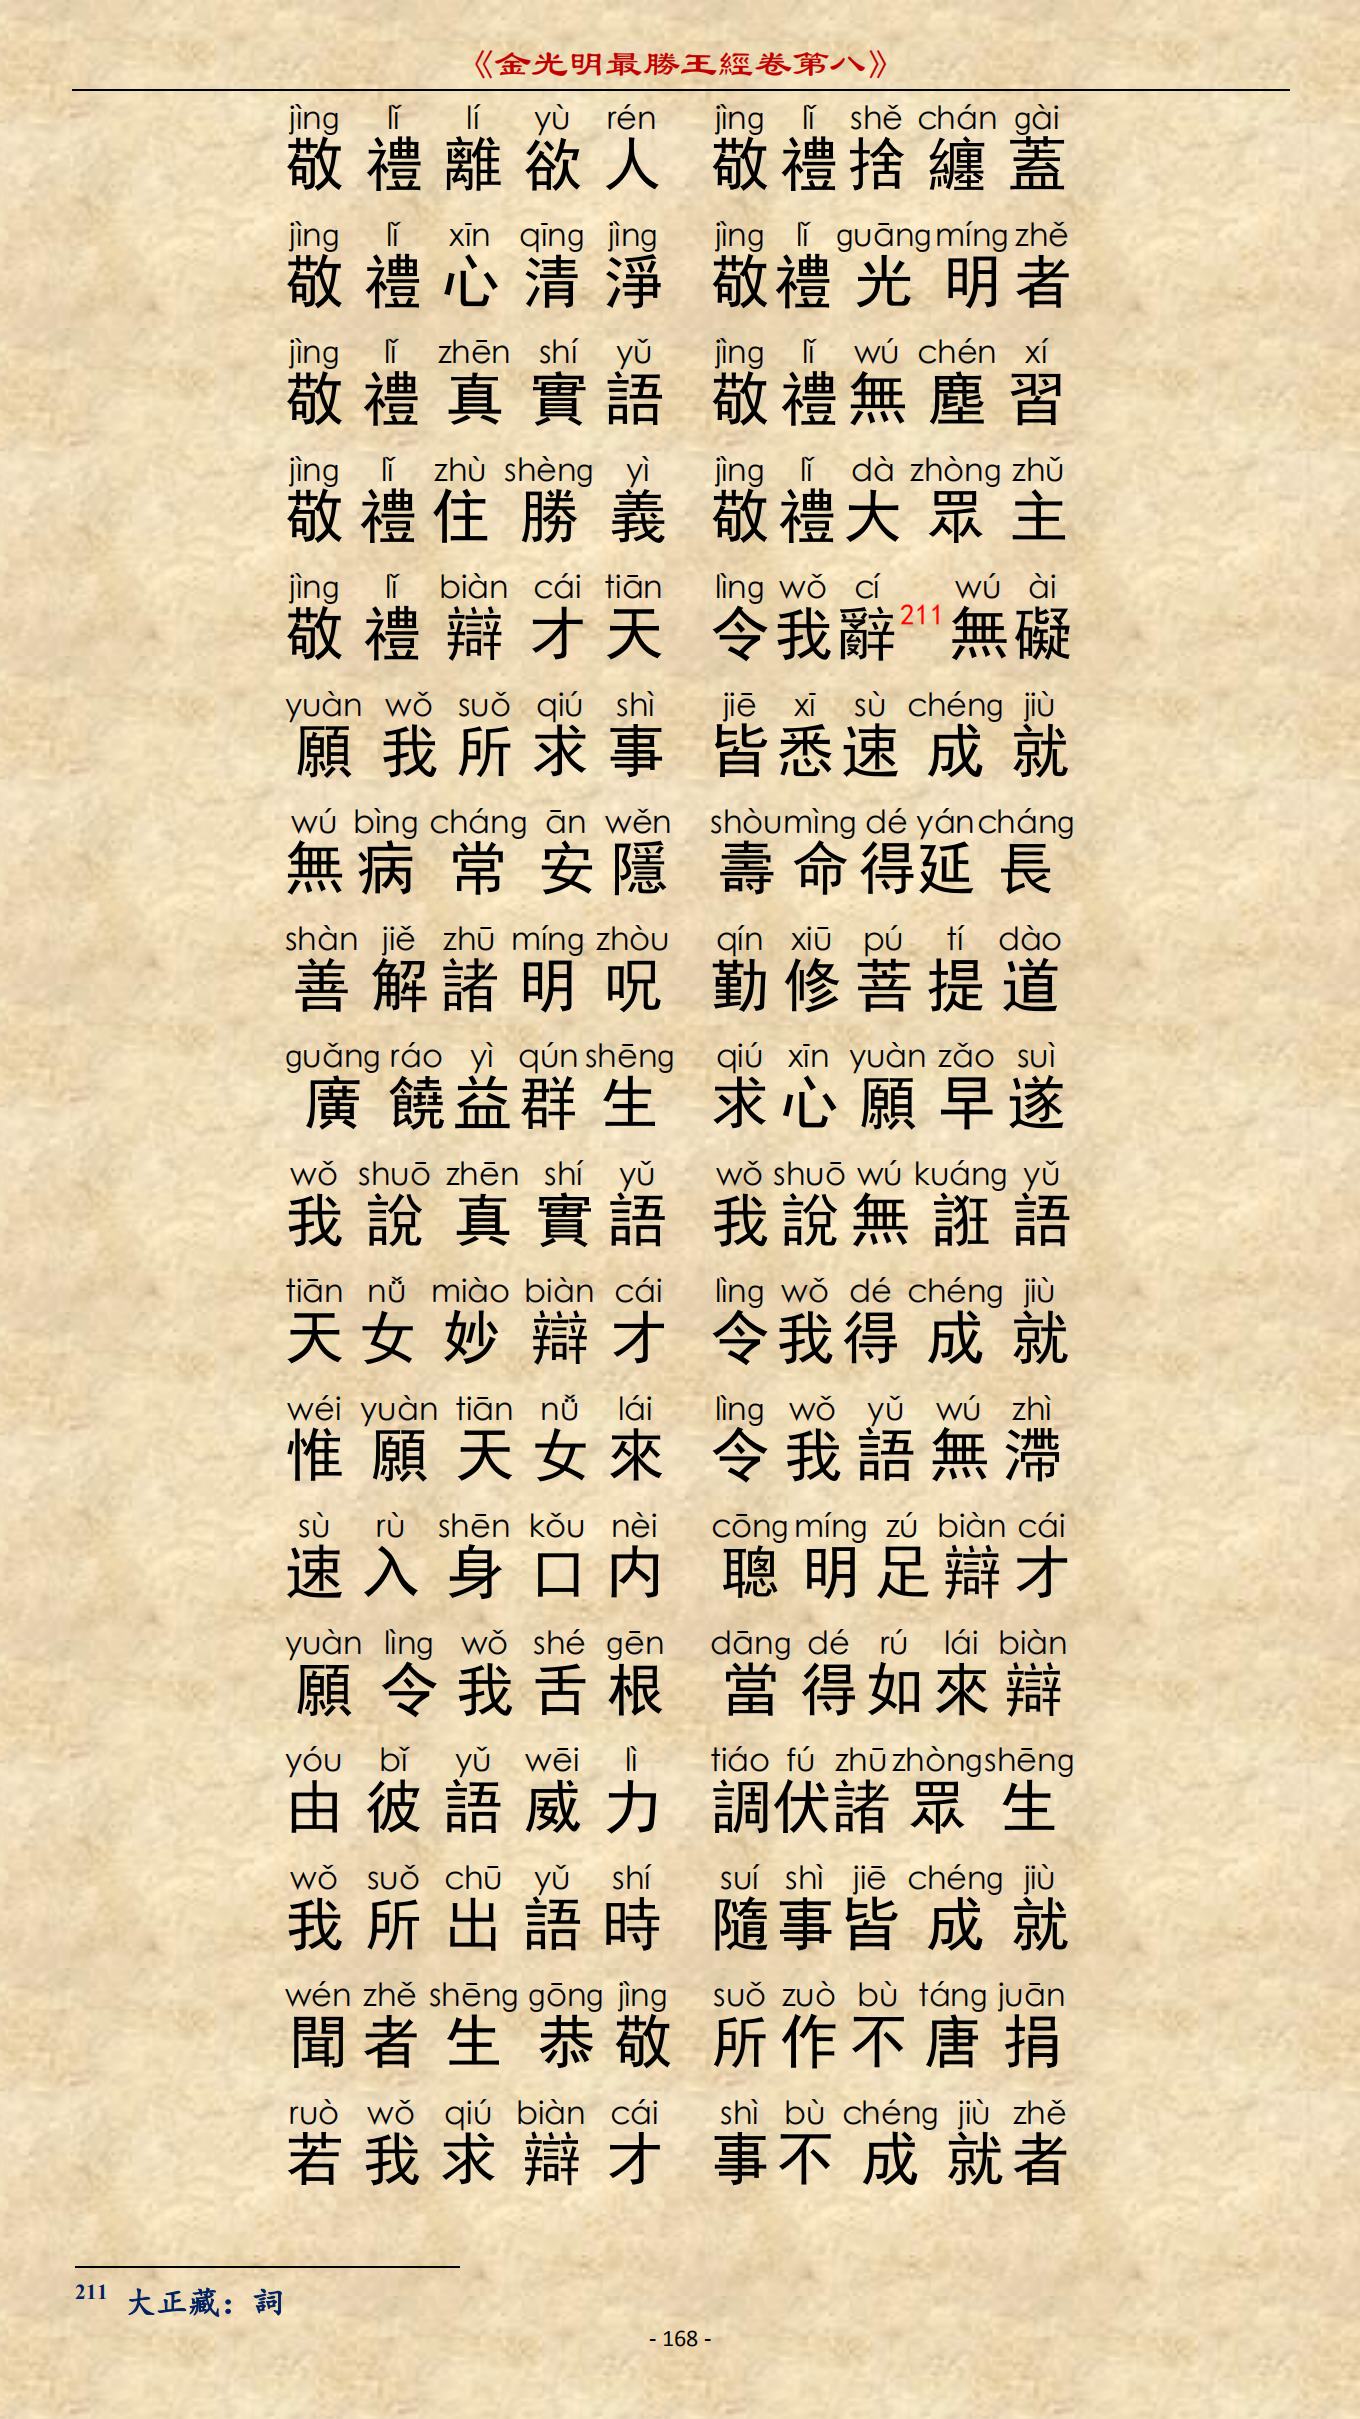 《金光明最勝王經卷第八》
jìng lǐ lí yù rén jìng lǐ shě chán gài
敬禮離欲人 敬禮捨纏蓋
jìng lǐ xīn qīng jìng jìng lǐ guāng míng zhě
敬禮心清淨 敬禮光明者
jìng lǐ zhēn shí yǔ jìng lǐ wú chén xí
敬禮真實語 敬禮無塵習
jìng lǐ zhù shèng yì jìng lǐ dà zhòng zhǔ
敬禮住勝義 敬禮大眾主
jìng lǐ biàn cái tiān lìng wǒ cí wú ài
敬禮辯才天 令我辭211無礙
yuàn wǒ suǒ qiú shì jiē xī sù chéng jiù
願我所求事 皆悉速成就
wú bìng cháng ān wěn shòu mìng dé yán cháng
無病常安隱 壽命得延長
shàn jiě zhū míng zhòu qín xiū pú tí dào
善解諸明呪 勤修菩提道
guǎng ráo yì qún shēng qiú xīn yuàn zǎo suì
廣饒益群生 求心願早遂
wǒ shuō zhēn shí yǔ wǒ shuō wú kuáng yǔ
我說真實語 我說無誑語
tiān nǚ miào biàn cái lìng wǒ dé chéng jiù
天女妙辯才 令我得成就
wéi yuàn tiān nǚ lái lìng wǒ yǔ wú zhì
惟願天女來 令我語無滯
sù rù shēn kǒu nèi cōng míng zú biàn cái
速入身口内 聰明足辯才
yuàn lìng wǒ shé gēn dāng dé rú lái biàn
願令我舌根 當得如來辯
yóu bǐ yǔ wēi lì tiáo fú zhū zhòng shēng
由彼語威力 調伏諸眾生
wǒ suǒ chū yǔ shí suí shì jiē chéng jiù
我所出語時 隨事皆成就
wén zhě shēng gōng jìng suǒ zuò bù táng juān
聞者生恭敬 所作不唐捐
ruò wǒ qiú biàn cái shì bù chéng jiù zhě
若我求辯才 事不成就者
211 大正藏：詞
- 168 -